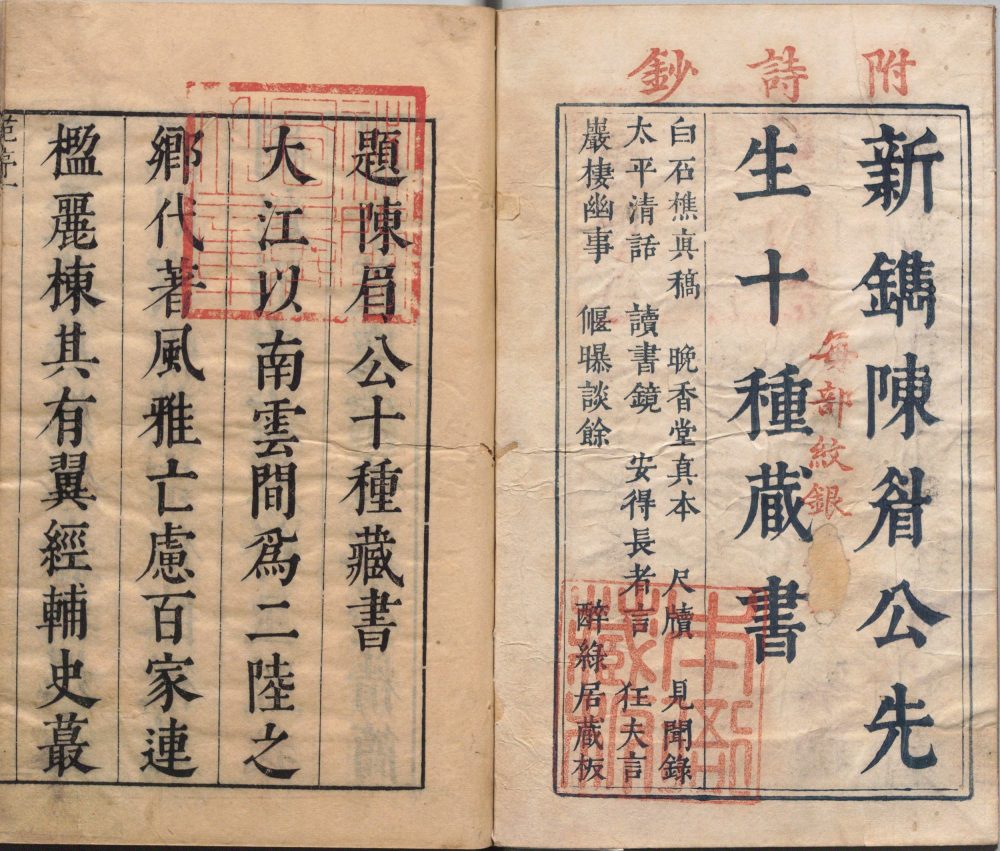 附詩鈔
新鐫陳睂公先
生十種蔵書
每部紋銀
白石樵真稿 晚香堂真本 尺牘 見聞錄
太平清話 讀書鏡 安得長者言 狂夫言
巖棲幽事 偃曝談餘 醉綠居蔵板
題陳眉公十種藏書
大江以南雲間爲二陸之
鄉代著風雅亡慮百家連
楹麗棟其有翼經輔史蕞